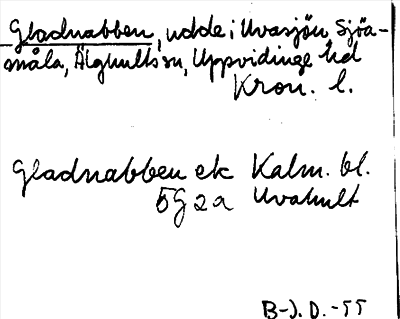 Gladnabben, udde i Uvasjön, Sjöa-
måla, Älghults sn, Uppvidinge hd
Kron. l.
Gladnabben ek Kalm. bl.
5G 2a Uvahult
B-J. D. -55